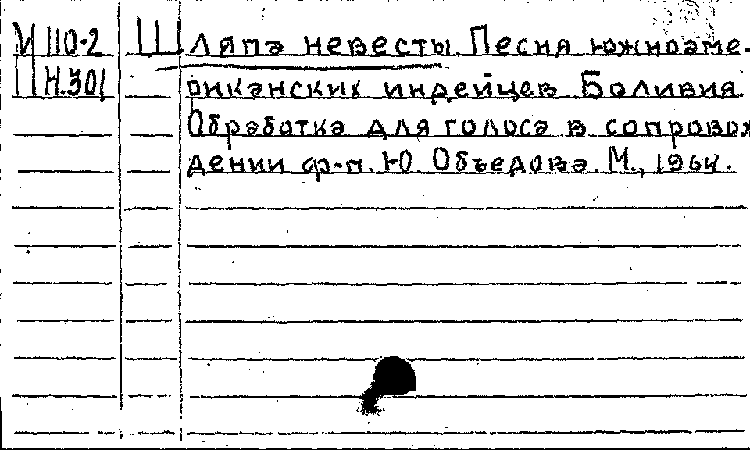 И 110-2 Шляпа невесты. Песня южноаме-
Н.301 риканских индейцев Боливия.
Обработка для голоса в сопровож
дении ф-п. Ю. Объедова. М., 1964.